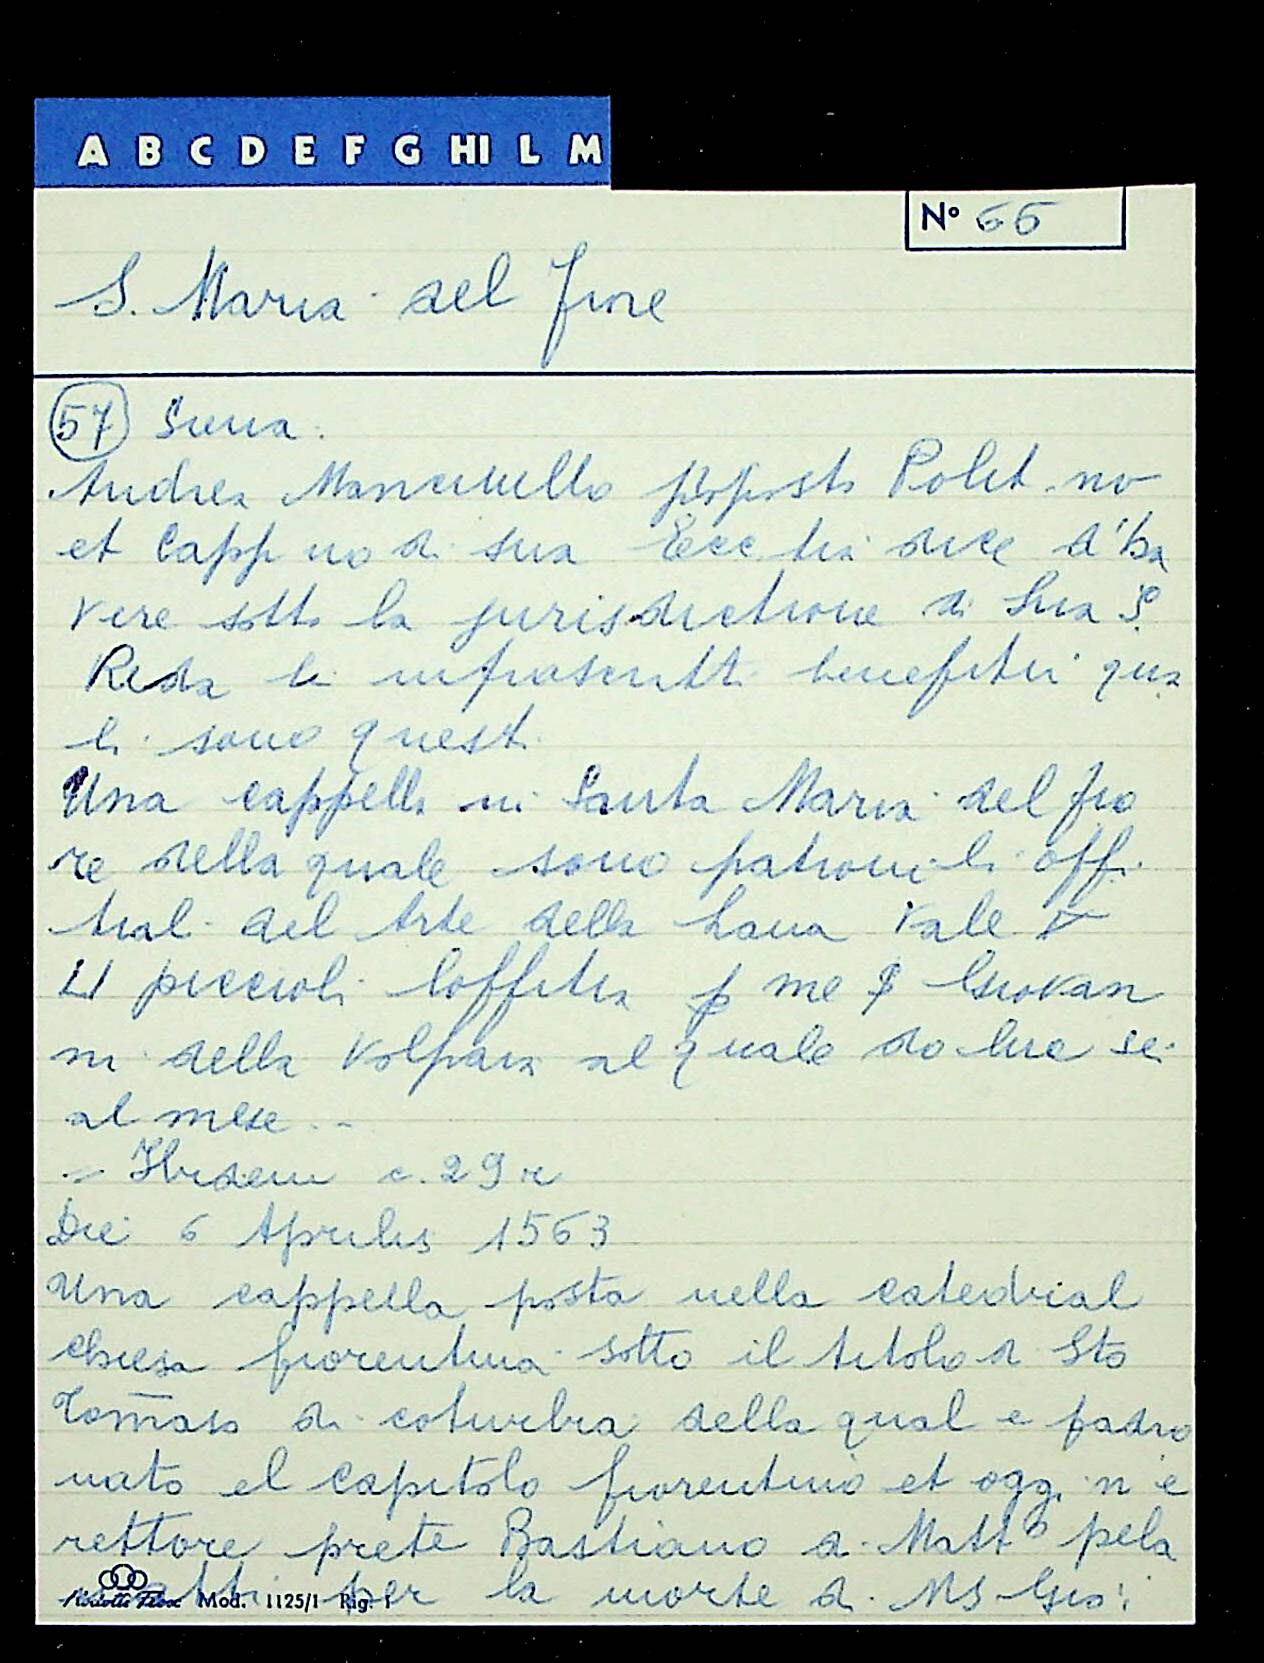 A B C D E F G HI L M
Nº 66
S. Maria del fiore
57 Siena.
Andrea Mancinello proposto Polit.no
et Capp no di sua Ecc.tia dice d'ha
vere sotto la jurisdictione di Sua S.
Reda li infrascritti benefitii qua
li sono questi.
Una cappella in Santa Maria del fio
re della quale sono patroni li offi
tiali del Arte della Lana vale
piccioli loffitia p me Giovan
ni della Volpaia al quale do lire sei
al mese...
= Ibidem c. 29 r
Die 6 Aprilis 1563
Una cappella posta nella catedrial
chiesa fiorentina sotto il titolo di Sto
Tom̄aso di coturbia della qual e padro
nato el capitolo fiorentino et oggi n'è
rettore prete Bastiano di Matt.o pela
per la morte di MS Gio:
Mod. 1125/1 Rig. 1